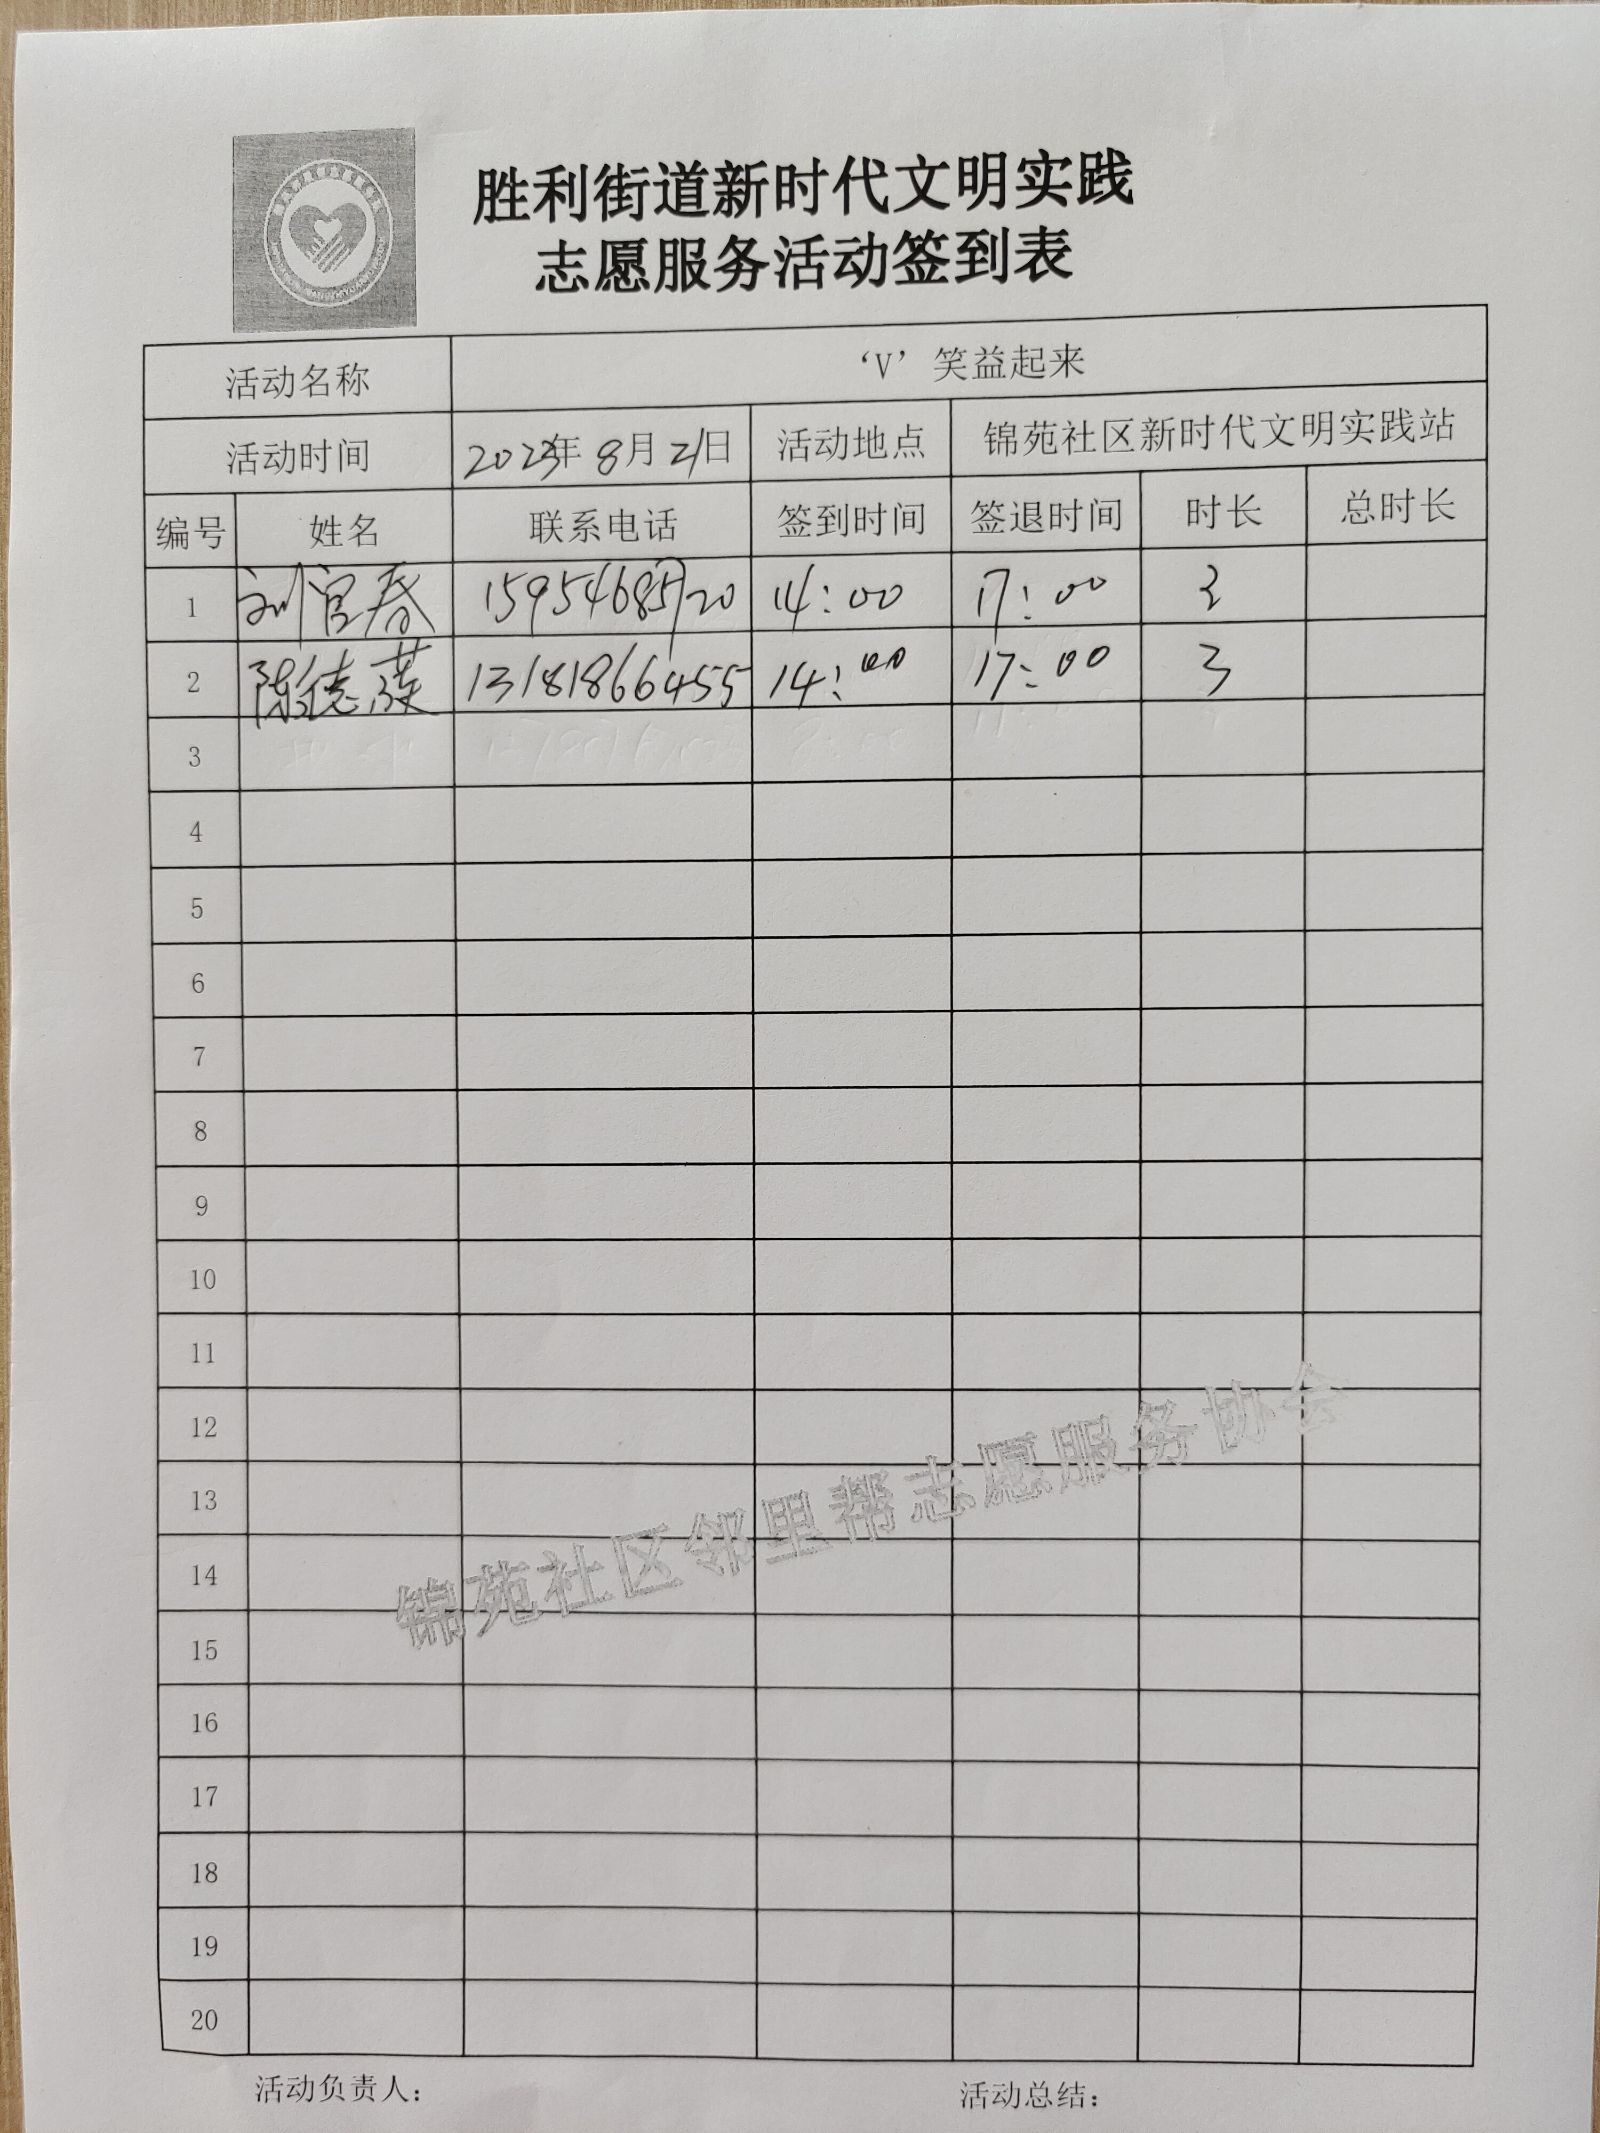 胜利街道新时代文明实践
志愿服务活动签到表
活动名称 ‘V’笑益起来
活动时间 2023年 8月 21日 活动地点 锦苑社区新时代文明实践站
编号 姓名 联系电话 签到时间 签退时间 时长 总时长
1 刘官春 14:00 17:00 3
2 陈德英 13181866455 14:00 17:00 3
3
4
5
6
7
8
9
10
11
12
13
14
15
16
17
18
19
20
锦苑社区邻里帮志愿服务协会
活动负责人: 活动总结: